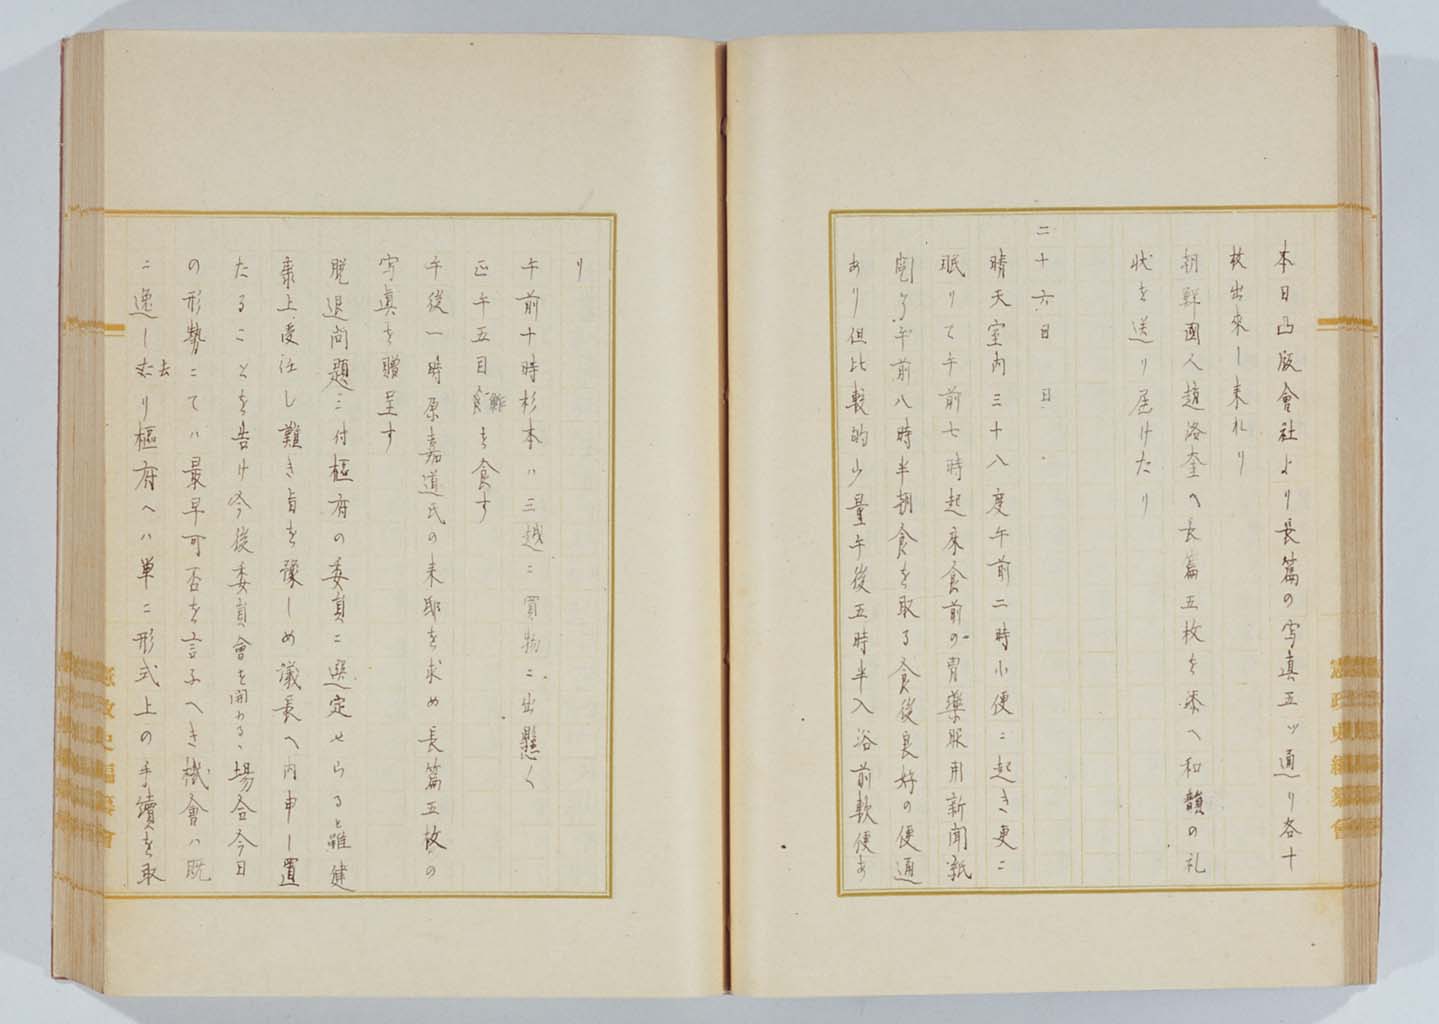 本日凸版會社より長篇の写真五ツ通り各十
枚出來し来れり
朝鮮国人趙洛奎へ長篇五枚を添へ和韻の礼
状を送り届けたり
二十六日　日
晴天室内三十八度午前二時小便ニ起き更ニ
眠りて午前七時起床食前の胃藥服用新聞紙
午前八時半朝食を取る食後良好の便通
あり但比較的少量午後五時半入浴前軟便あ
り
午前十時杉本ハ三越ニ買物ニ出懸く
正午五目鮓を食す
午後一時原嘉道氏の来邸を求め長篇五枚の
写真を贈呈す
脱退問題ニ付樞府の委員ニ選定せらると雖健
康上受任し難き旨を豫しめ議長へ内申し置
たることを告け今後委員會を開わるゝ場合今日
の形勢こてハ最早可否を言ふへき機會ハ既
ニ逸し去れり樞府へハ単ニ形式上の手續を取
憲政史編纂會
憲政史編纂會